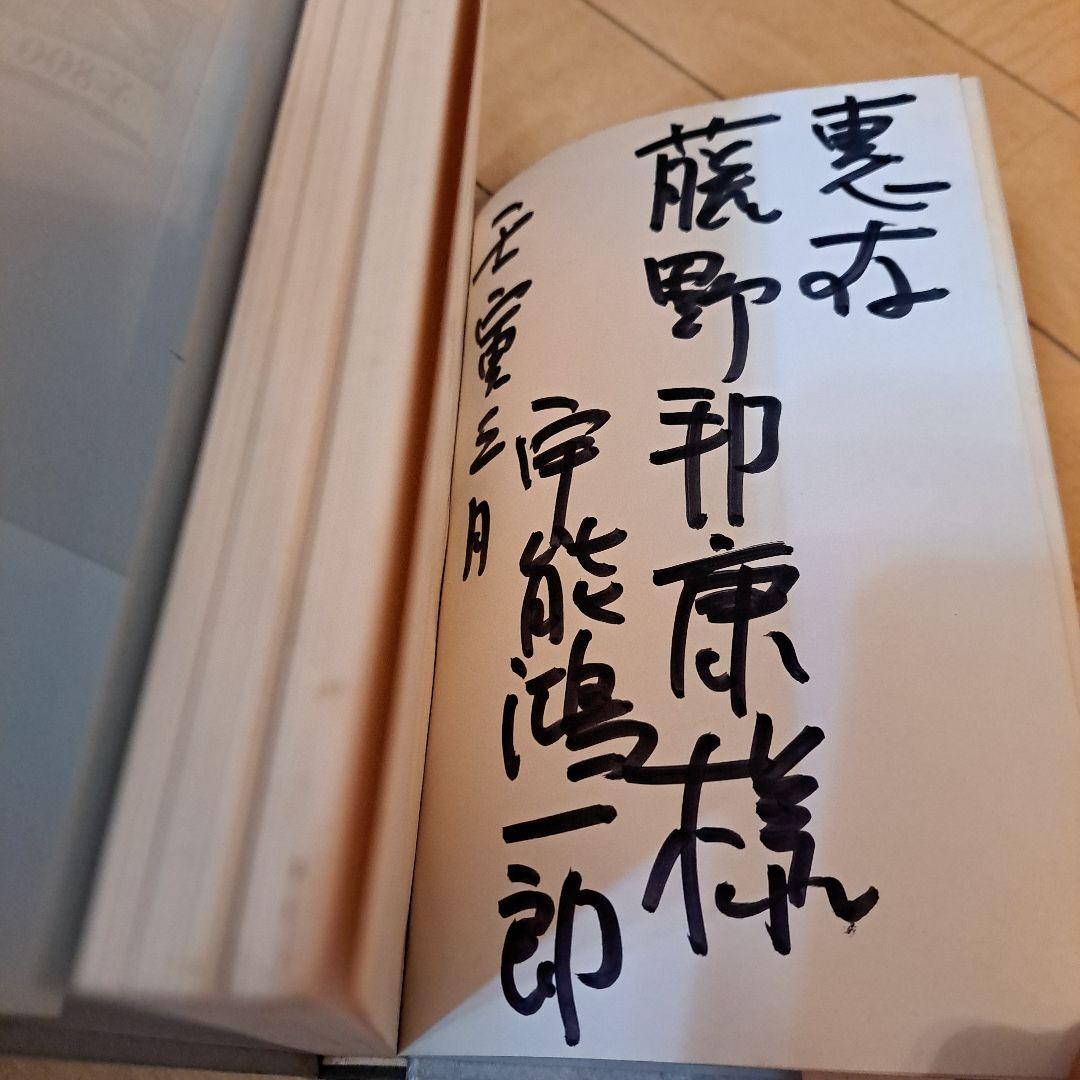 恵存
藤野邦康様
宇能鴻一郎
壬寅三月